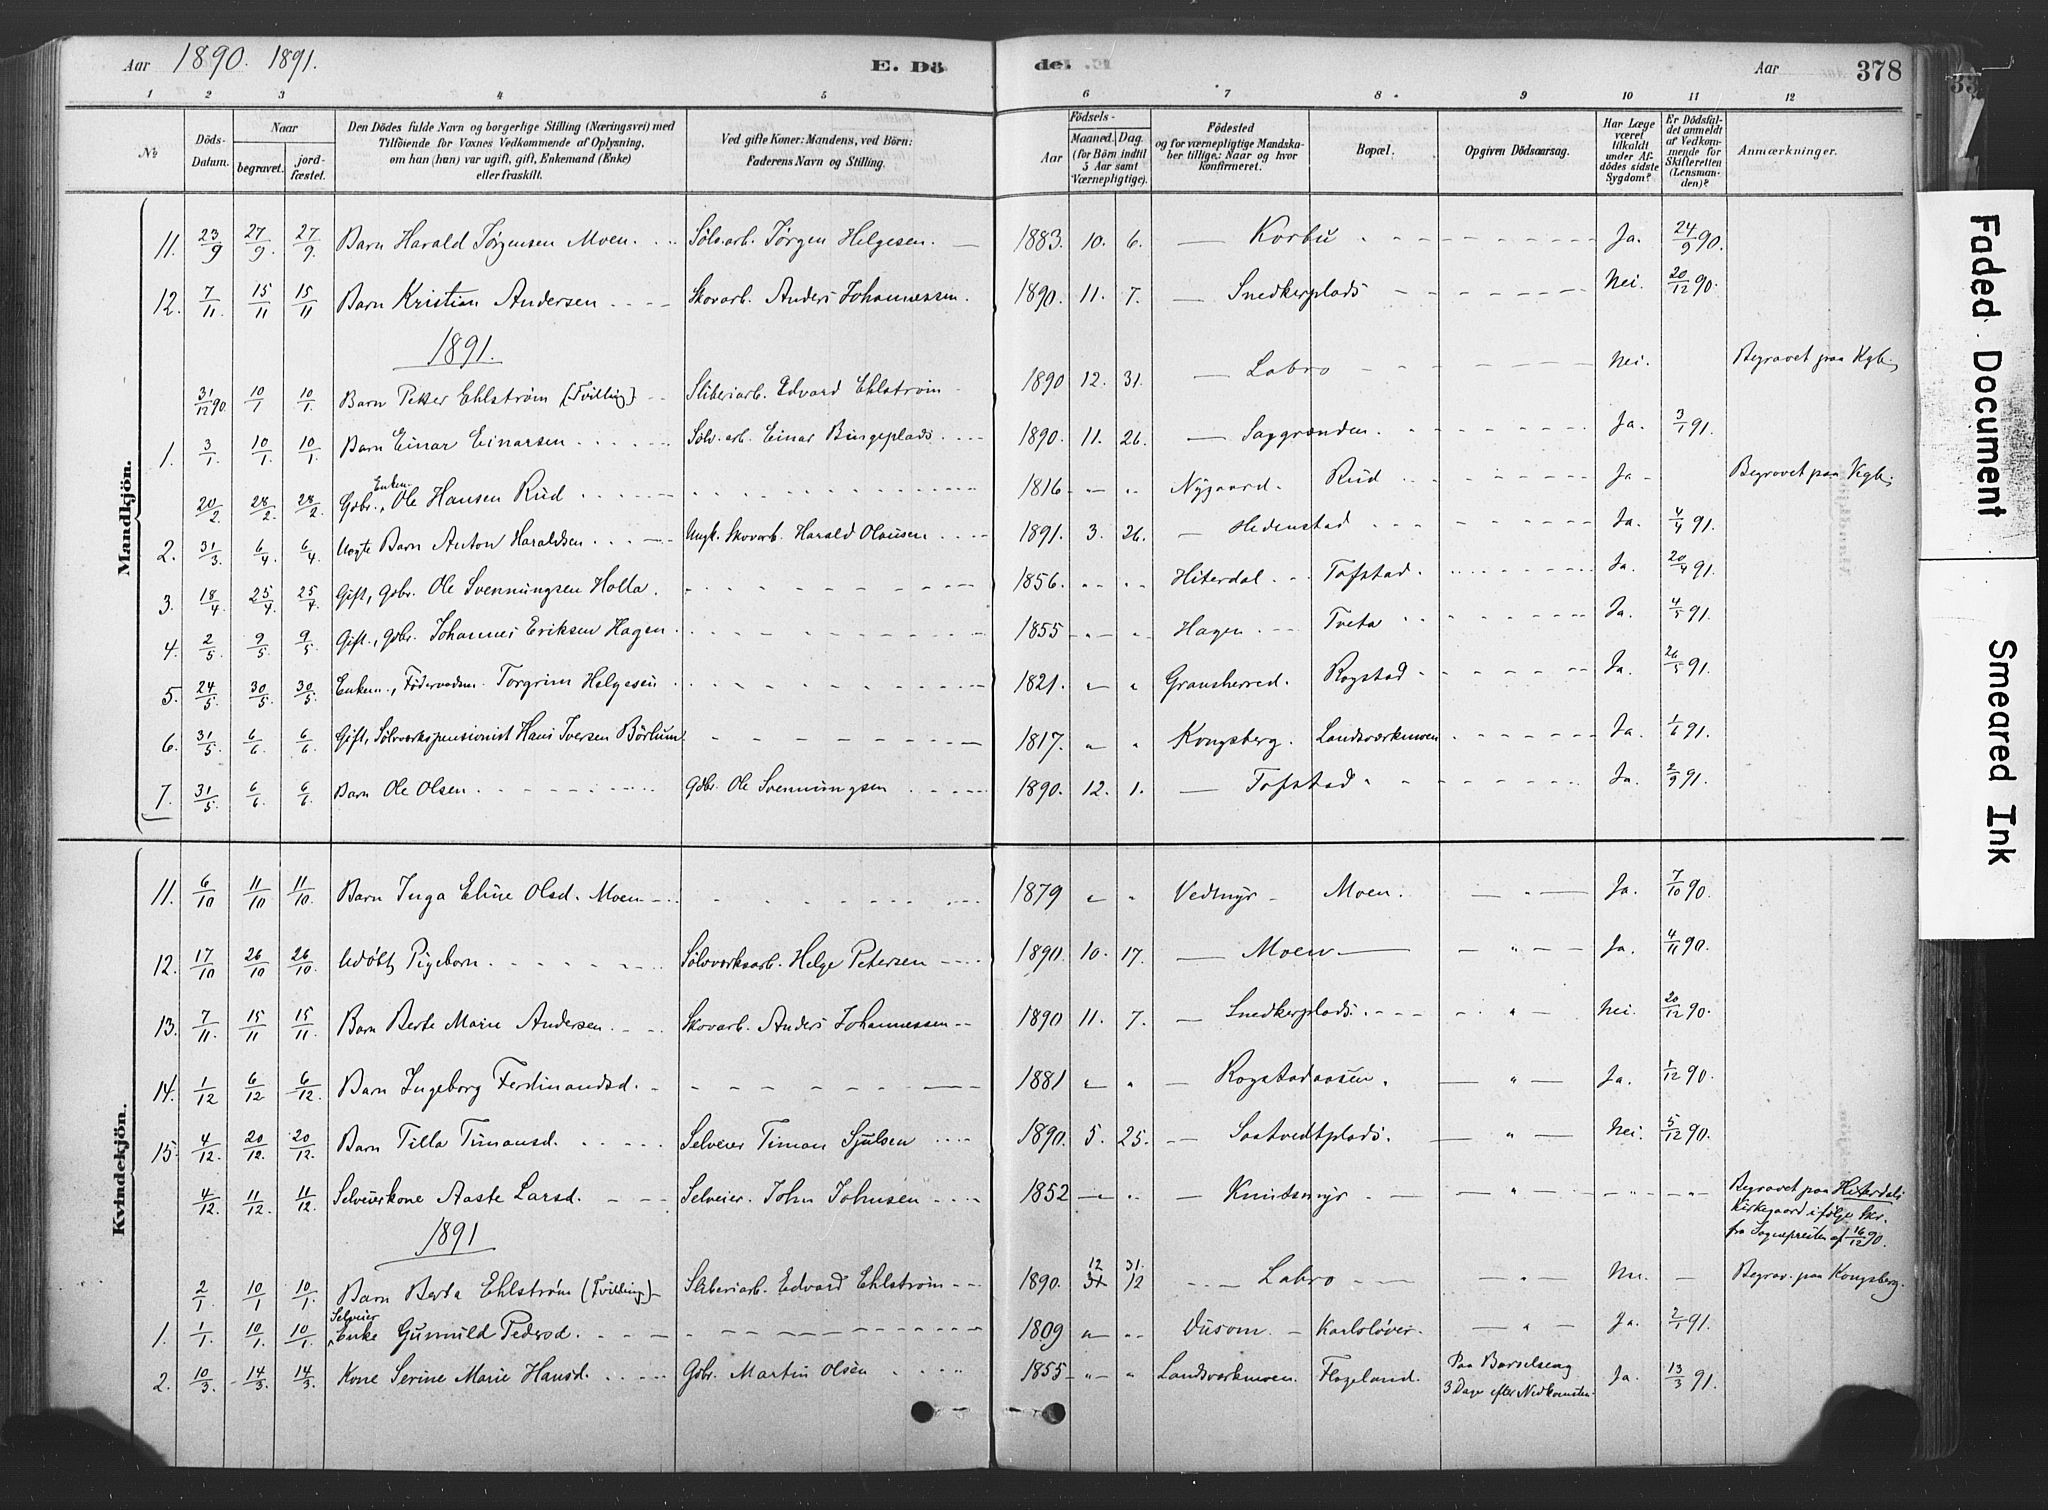 Aar 1890. 1891. E. Dö de. Aar 378
1 2 3 4 5 6 7 8 9 10 11 12
№ Döds-Datum. Naar begravet. jordfæstet. Den Dödes fulde Navn og borgerlige Stilling (Næringsvei) med Tilföiende for Voxnes Vedkommende af Oplysning, om han (hun) var ugift, gift, Enkemand (Enke) eller fraskilt. Ved gifte Koner: Mandens, ved Börn: Faderens Navn og Stilling. Födsels- Aar Maaned. Dag. (for Börn indtil 5 Aar samt Værnepligtige). Födested og for værnepligtige Mandskaber tillige: Naar og hvor konfirmeret. Bopæl. Opgiven Dödsaarsag. Har Læge været tilkaldt under Afdödes sidste Sygdom? Er Dödsfaldet anmeldt af Vedkommende for Skifteretten (Lensmanden)? Anmærkninger.
Mandkjön.
11. 23/9 27/9. 27/9. Barn Harald Jørgensen Moen. Sølvarb. Jørgen Helgesen. 1883. 10. 6. — Korbu Ja. 24/9 90.
12. 7/11. 15/11 15/11 Barn Kristian Andersen Skovarb. Anders Johannessen. 1890. 11. 7. — Snedkerplads Nei. 20/12 90.
1891.
31/12 90. 10/1 10/1. Barn Petter Ehlstrøm (Tvilling) Sliberiarb. Edvard Ehlstrøm 1890 12. 31. — Labro Nei. Begravet paa Kgb.
1. 3/1. 10/1. 10/1. Barn Einar Einarsen Sølv.arb. Einar Bingeplads 1890. 11. 26. — Saggrenden. Ja. 3/1 91.
20/2 28/2. 28/2. Gdbr., Enkem. Ole Hansen Rud 1816 Nygaard. Rud Ja Begravet paa Kgb.
2. 31/3. 6/4 6/4. Uegte Barn Anton Haraldsen Ungk. Skovarb. Harald Olausen 1891. 3. 26. — Hedenstad Ja. 4/4 91.
3. 18/4 25/4. 25/4. Gift, Gdbr. Ole Svennungsen Holla. 1856. Hiterdal Tofstad. Ja 20/4 91.
4. 2/5 9/5 9/5 Gift., Gdbr. Johannes Eriksen Hagen 1855 Hagen Tveta Ja. 4/5 91.
5. 24/5. 30/5. 30/5. Enkem., Föderaadsm. Torgrim Helgesen 1821. Gransherred. Rogstad Ja. 26/5 91.
6. 31/5 6/6. 6/6. Gift, Sölvverkspensionist Hans Iversen Börlum 1817. Kongsberg. Landsværkmoen Ja. 1/6 91.
7. 31/5. 6/6. 6/6. Barn Ole Olsen Gdbr. Ole Svennungsen 1890. 12. 1. — Tofstad Ja. 2/9 91.
Kvindekjön.
11. 6/10 11/10 11/10. Barn Inga Eline Olsd. Moen 1879 Vedmyr Moen. Ja. 7/10 90.
12. 17/10 26/10 26/10 Udøbt Pigebarn Sölvverksarb. Helge Petersen 1890. 10. 17. — Moen — Ja. 4/11 90.
13. 7/11. 15/11 15/11. Barn Berte Marie Andersen Skovarb. Anders Johannessen 1890 11. 7. — Snedkerplads. Nei. 20/12 90.
14. 1/12 6/12 6/12. Barn Ingeborg Ferdinandsd. 1881 — Rogstadaasen. Ja. 1/12 90.
15. 4/12. 20/12. 20/12 Barn Tilla Timansd. Selveier Timan Sjulsen 1890. 5. 25. — Saatvedtplads. Nei. 5/12 90.
4/12. 11/12. 11/12 Selveierkone Aaste Larsd. Selveier. John Johnsen 1852 — Knudsmyr Begravet paa Hiterdals
Kirkegaard i følge Skr.
fra Sognepresten af 16/12 90.
1891
2/1 10/1 10/1. Barn Berta Ehlstrøm (Tvilling) Sliberiarb. Edvard Ehlstrøm 1890. 12 31. 31 12 Labro Nei. — Begrav. paa Kongsberg.
1. 1/1. 10/1 10/1. Selveier Enke Gunnild Pedersd. 1809 Dusom. Karlsløver. Ja. 2/1 91.
2. 10/3. 14/3 14/3. Kone Serine Marie Hansd. Gdbr. Martin Olsen 1855 Landsværkmoen. Flageland. Paa Barselseng 3 Dage efter Nedkomsten. Ja. 13/3 91.
Faded Document
Smeared Ink